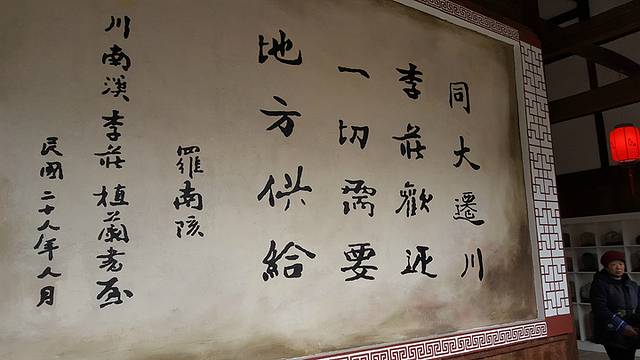 同大遷川
李莊歡迎
一切需要
地方供給
羅南陔
川南溪李莊植蘭書屋
民國二十八年八月